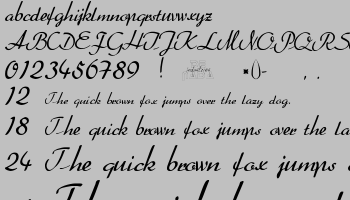 abcdefghijklmnopqrstuvwxyz
ABCDEFGHIJKLMNOPQRS
0123456789 ! *()- , .
12 The quick brown fox jumps over the lazy dog.
18 The quick brown fox jumps over the la
24 The quick brown fox jumps